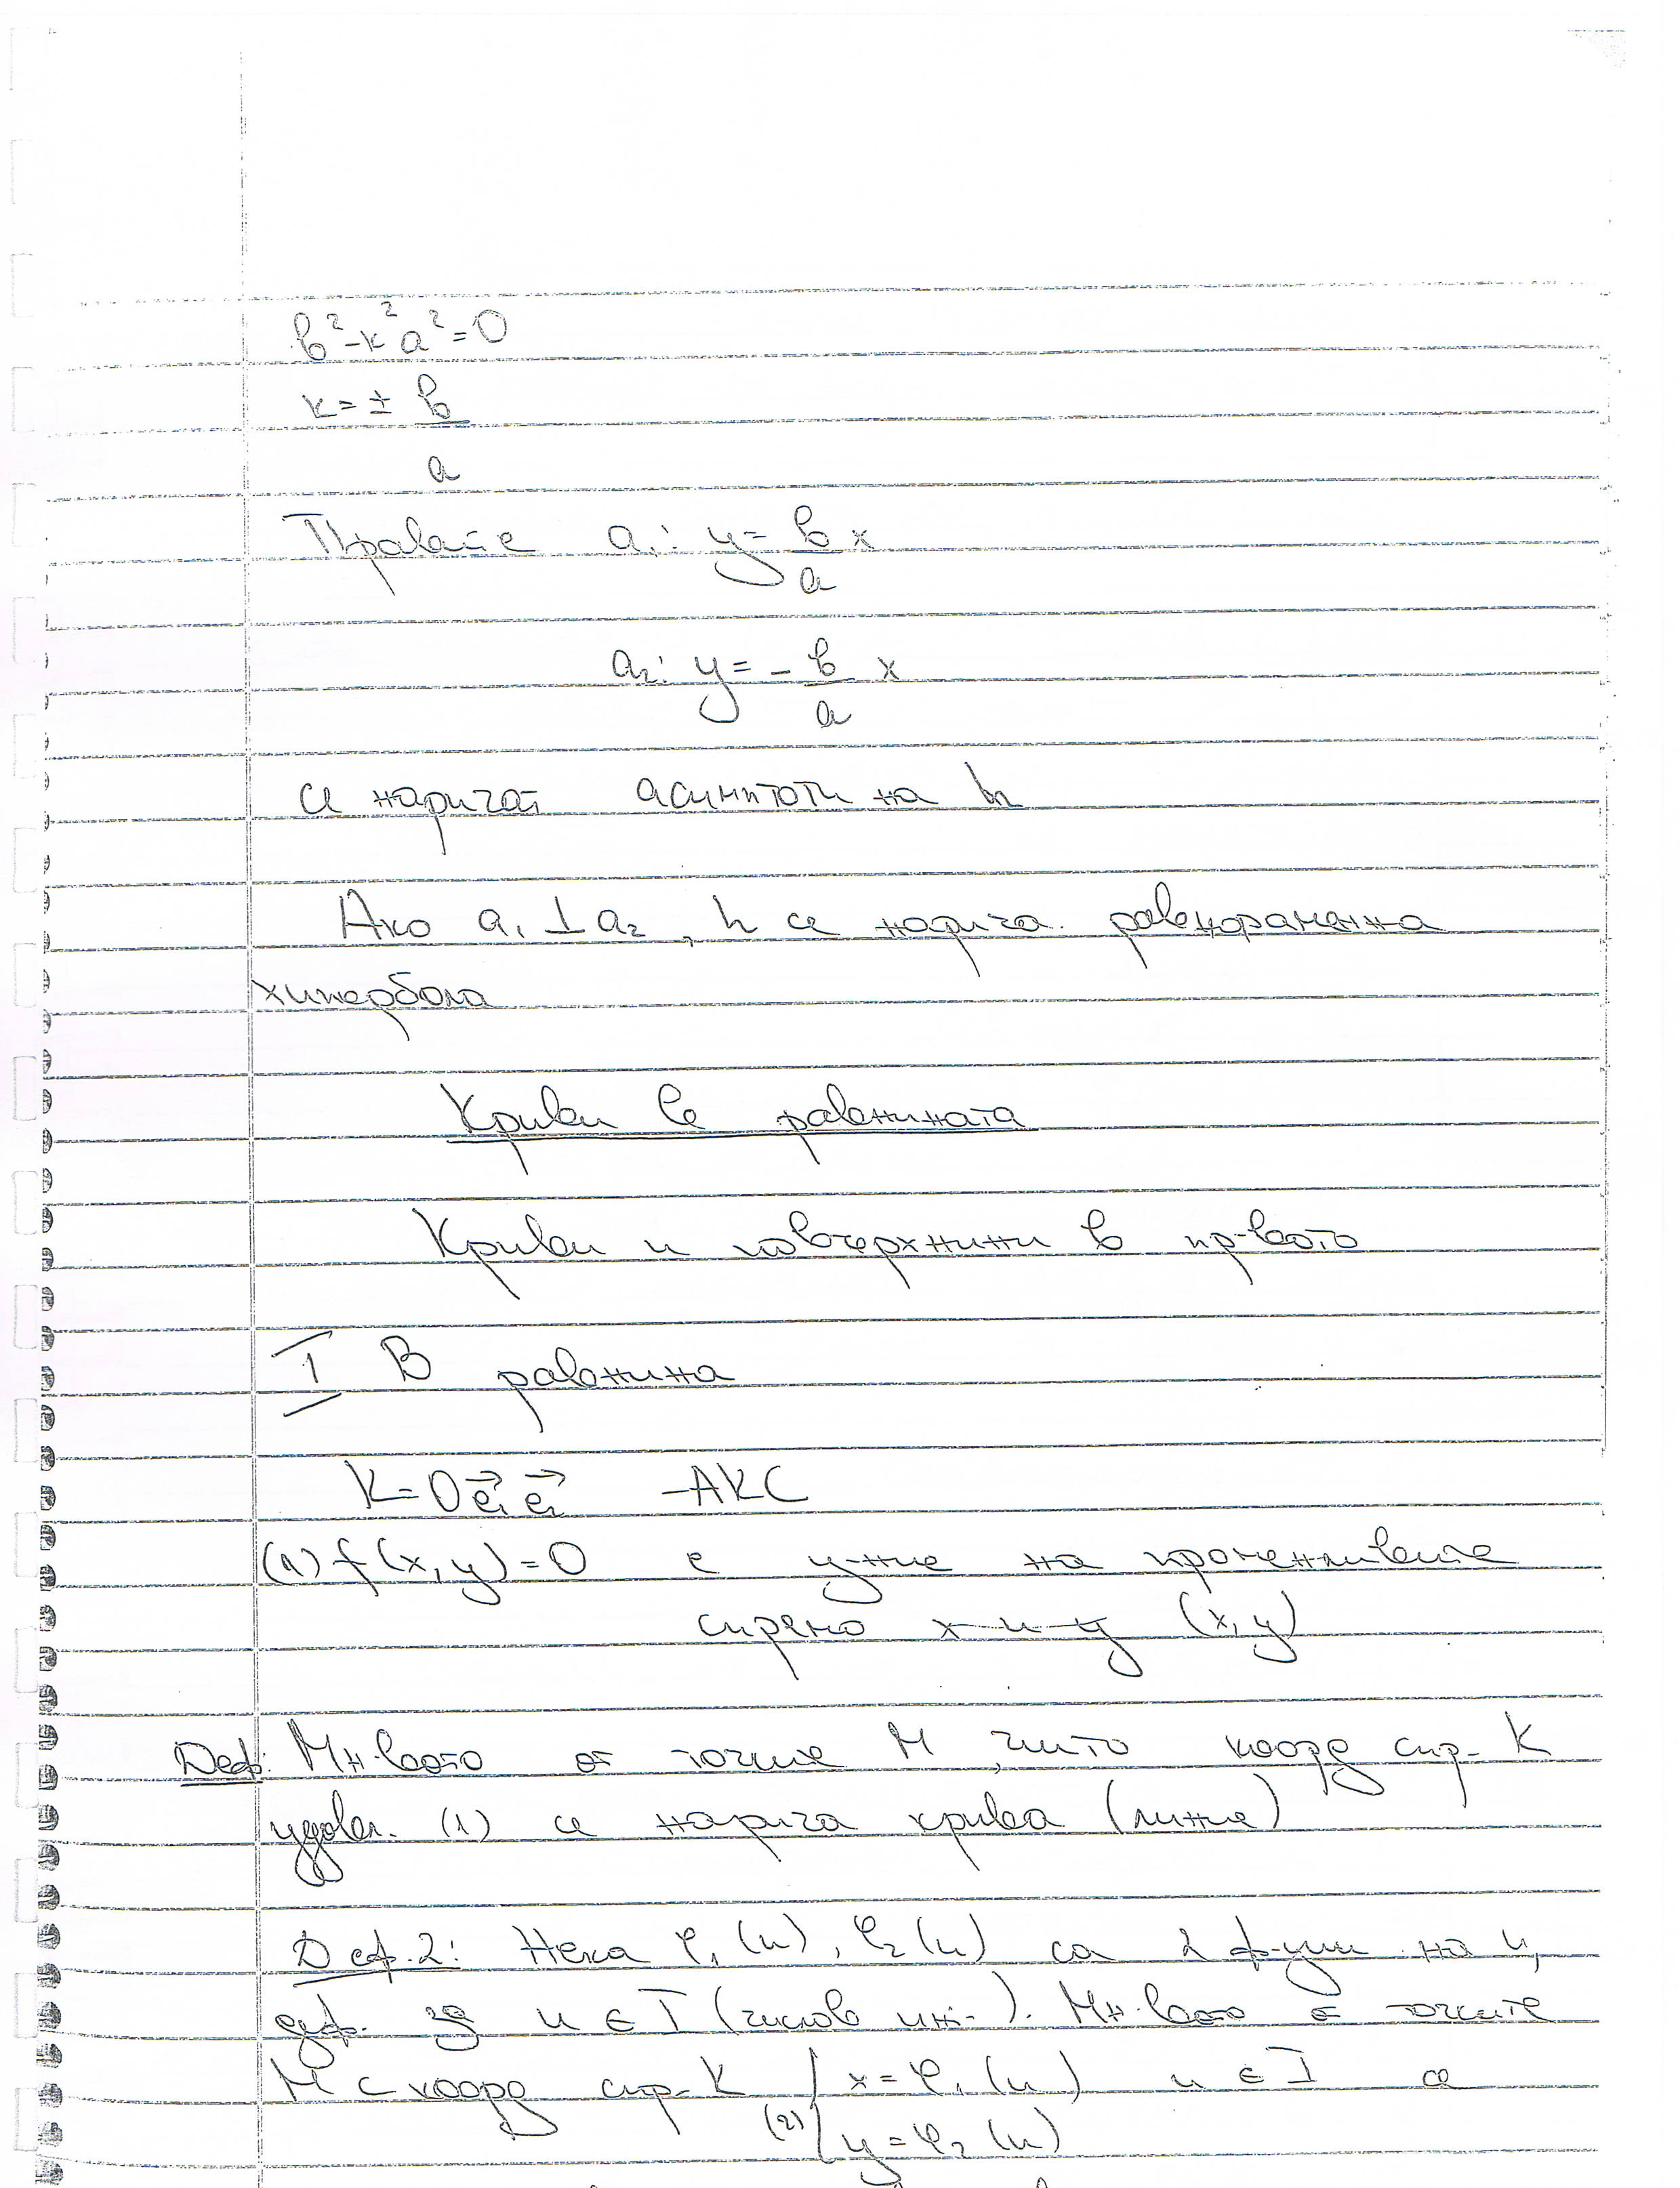 b² - k² a² = 0
k = ± b/a
Правите a₁: y = b/a x
a₂: y = - b/a x
се наричат асимптоти на h
Ако a₁ ⊥ a₂, h се нарича равнораменна
хипербола
Криви в равнината
Криви и повърхнини в пр-вото
I В равнина
K = O e₁ e₂ - АКС
(1) f(x, y) = 0 е у-ние на променливите
спрямо x и y (x, y)
Деф: Мн-вото от точки M, чиито коорд спр. K
удовл. (1) се нарича крива (линия)
Деф. 2: Нека φ₁(u), φ₂(u) са 2 ф-ции на u,
деф. за u ∈ I (числов инт.). Мн-вото от точките
M с коорд спр. K { x = φ₁(u) u ∈ I се
(2) { y = φ₂(u)